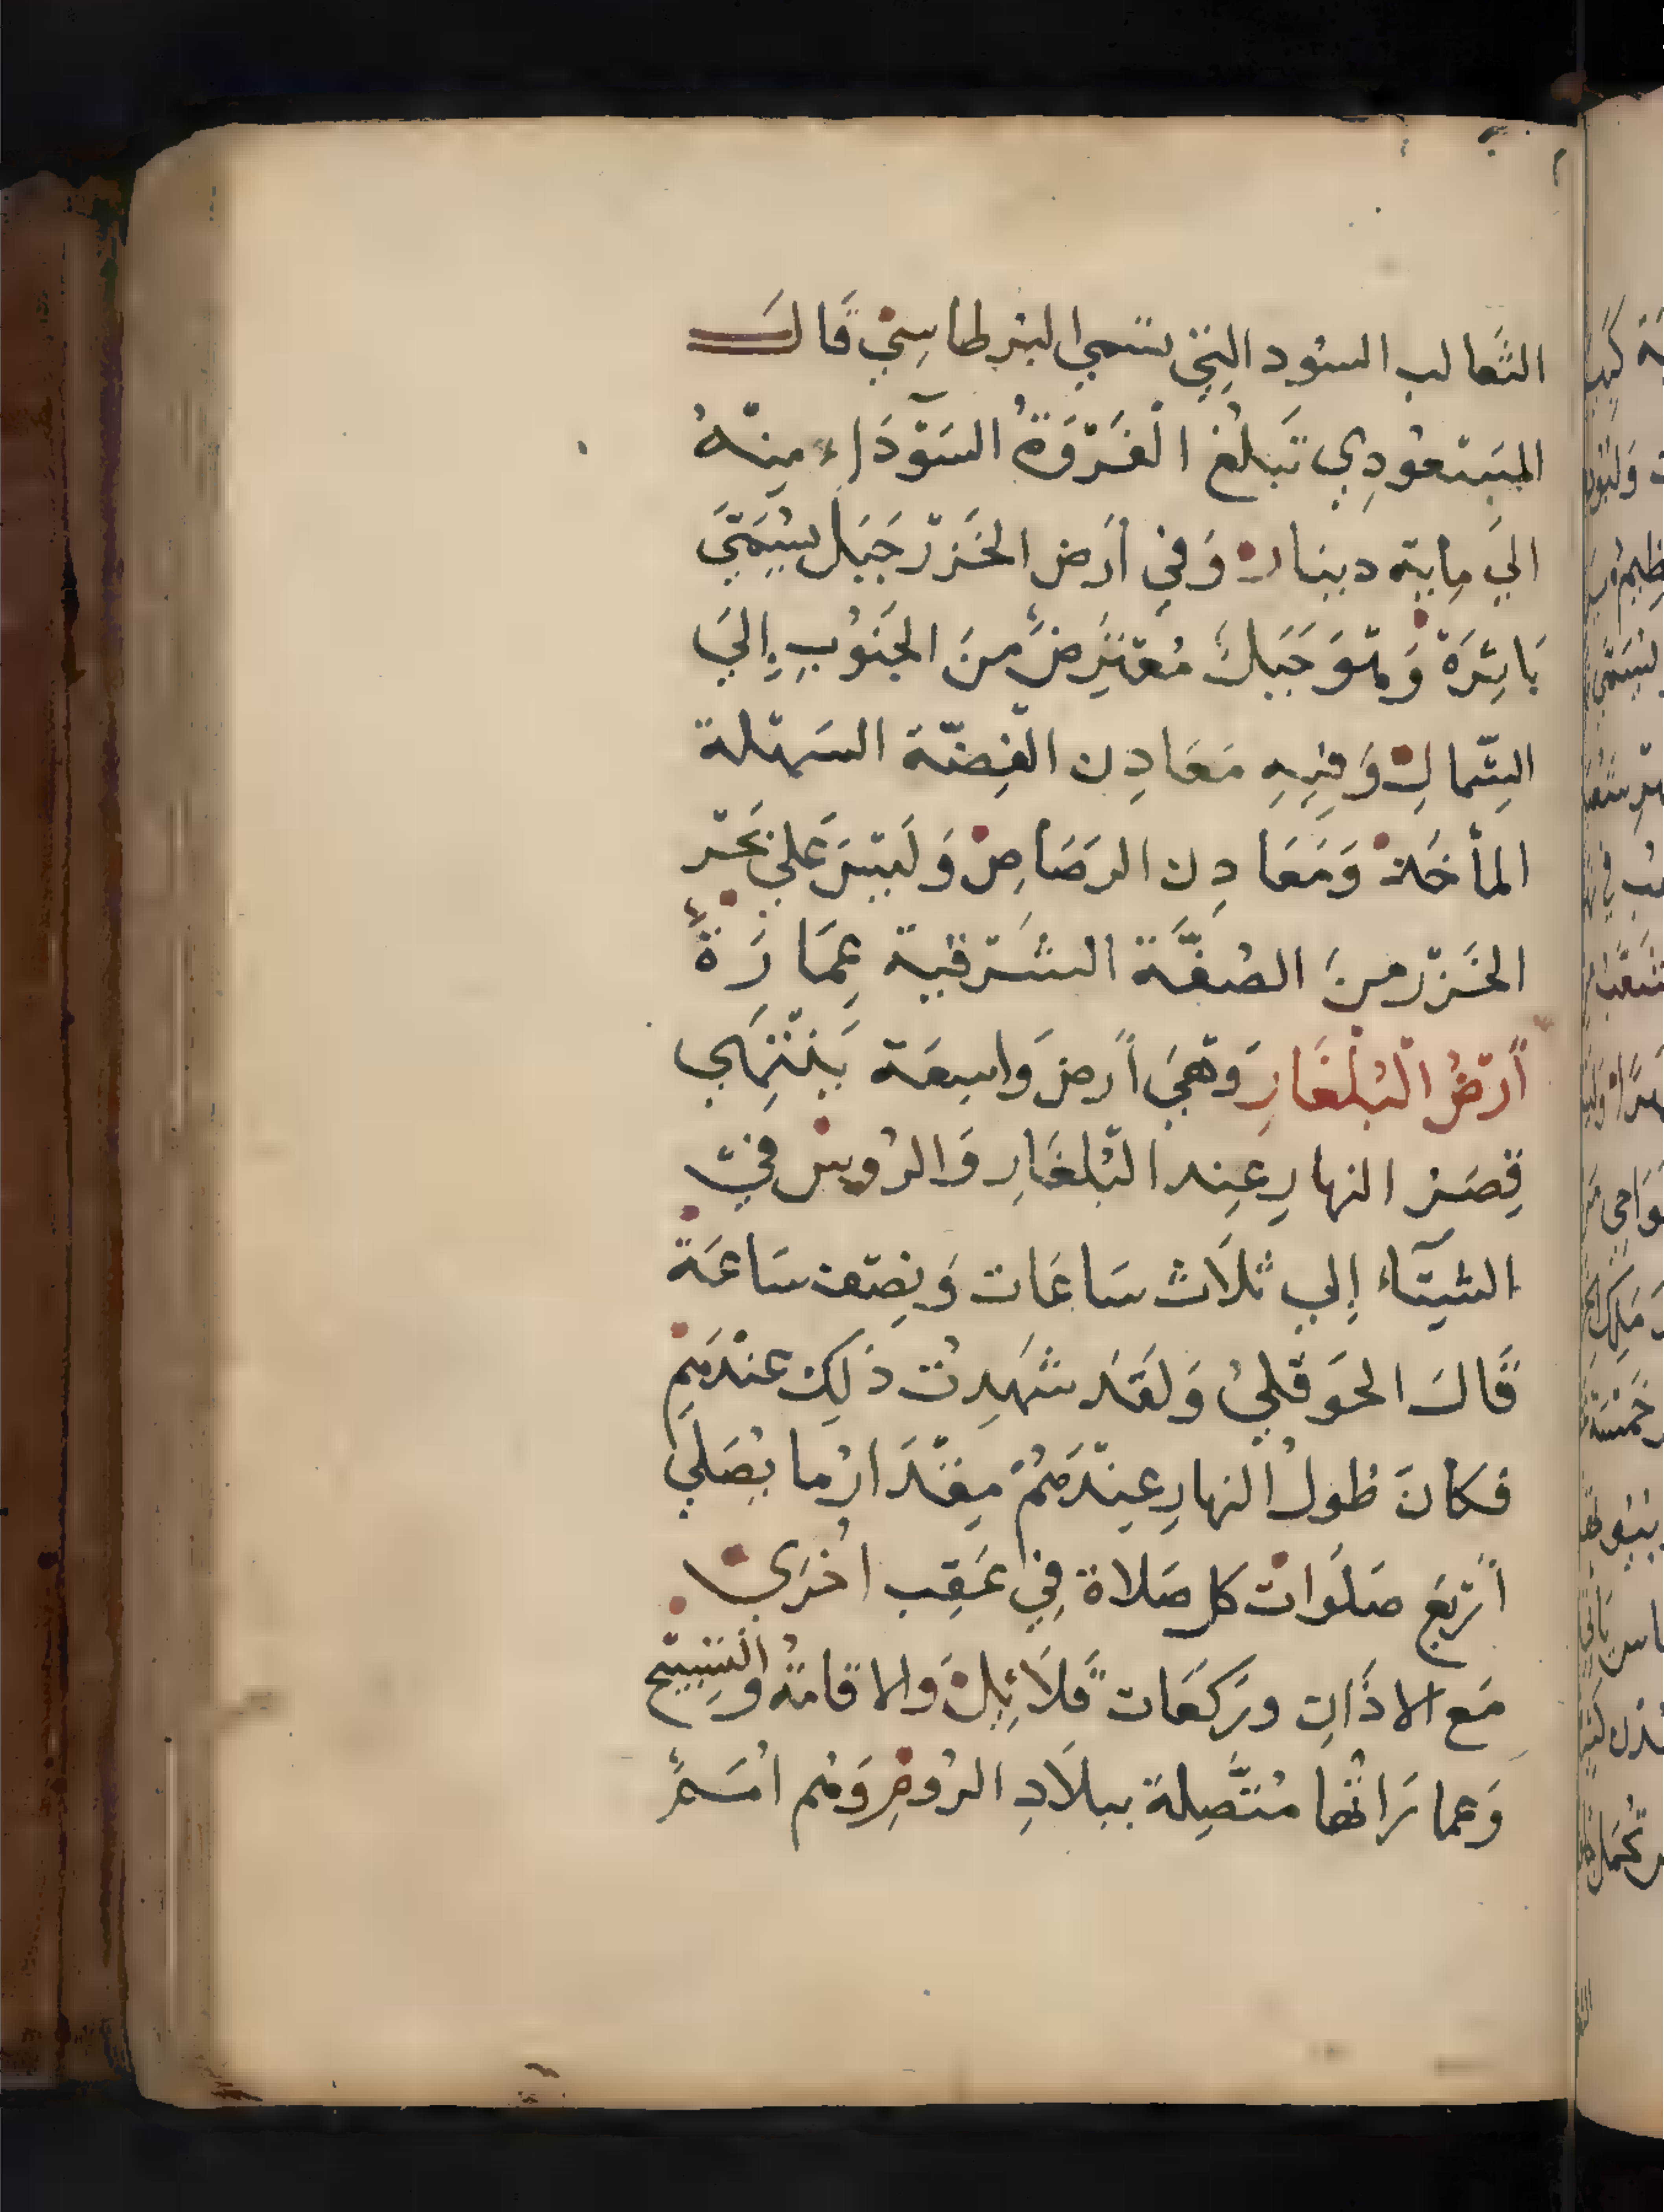 الثَعالب السْود التِي تسَمي البْرطاسِيْ قَالَ
المسَعْودِي تَبلُغ الْفَرْوَةُ السَوْدَاء مِنْهُ
اليَ مِايتِه دينار وَفي أرَض الخَزرْ جَبَل يسُمَيَّ
بَاثِرَة وَهْوَ جَبَل مُعْتَرِضٌ مِنَ الجَنوُبِ إِليَ
الشّمالِ وَفيِهِ مَعَادِن الفِضّة السَهْلة
المأخَذ وَمَعَادِن الرَصَاصِ وَلَيْسَ عَلي بَحْر
الخَزرْ مِنَ الضفَّة الشَرْقية عِمَارَةٌ
أرْضُ الْبُلْغَارِ وَهْيَ أرَض وَاسِعَة يَنْتَهِي
قِصَر النهارِ عِند البُلغَارِ وَالرُوس فيْ
الشِتَاء إِلي ثلَاث سَاعَات وَنِصْف سَاعَة
قَالَ الحَوقَليُ وَلَقَد شَهِدتُ ذَلِك عِنْدَهُم
فكَانَ طُولُ النهارِ عِنْدَهُمْ مِقْدَارُ ما يُصَلَي
أرْبَع صَلَوات كل صَلاة فِي عَقِب اخُرَي
مَع الاذَانِ ورَكعَات قَلَائِل وَالاقامَةُ وَالتسَبِيح
وَعمارَاتُها مُتَّصِلة ببلَادِ الرُومِ وَهُم امُمَ